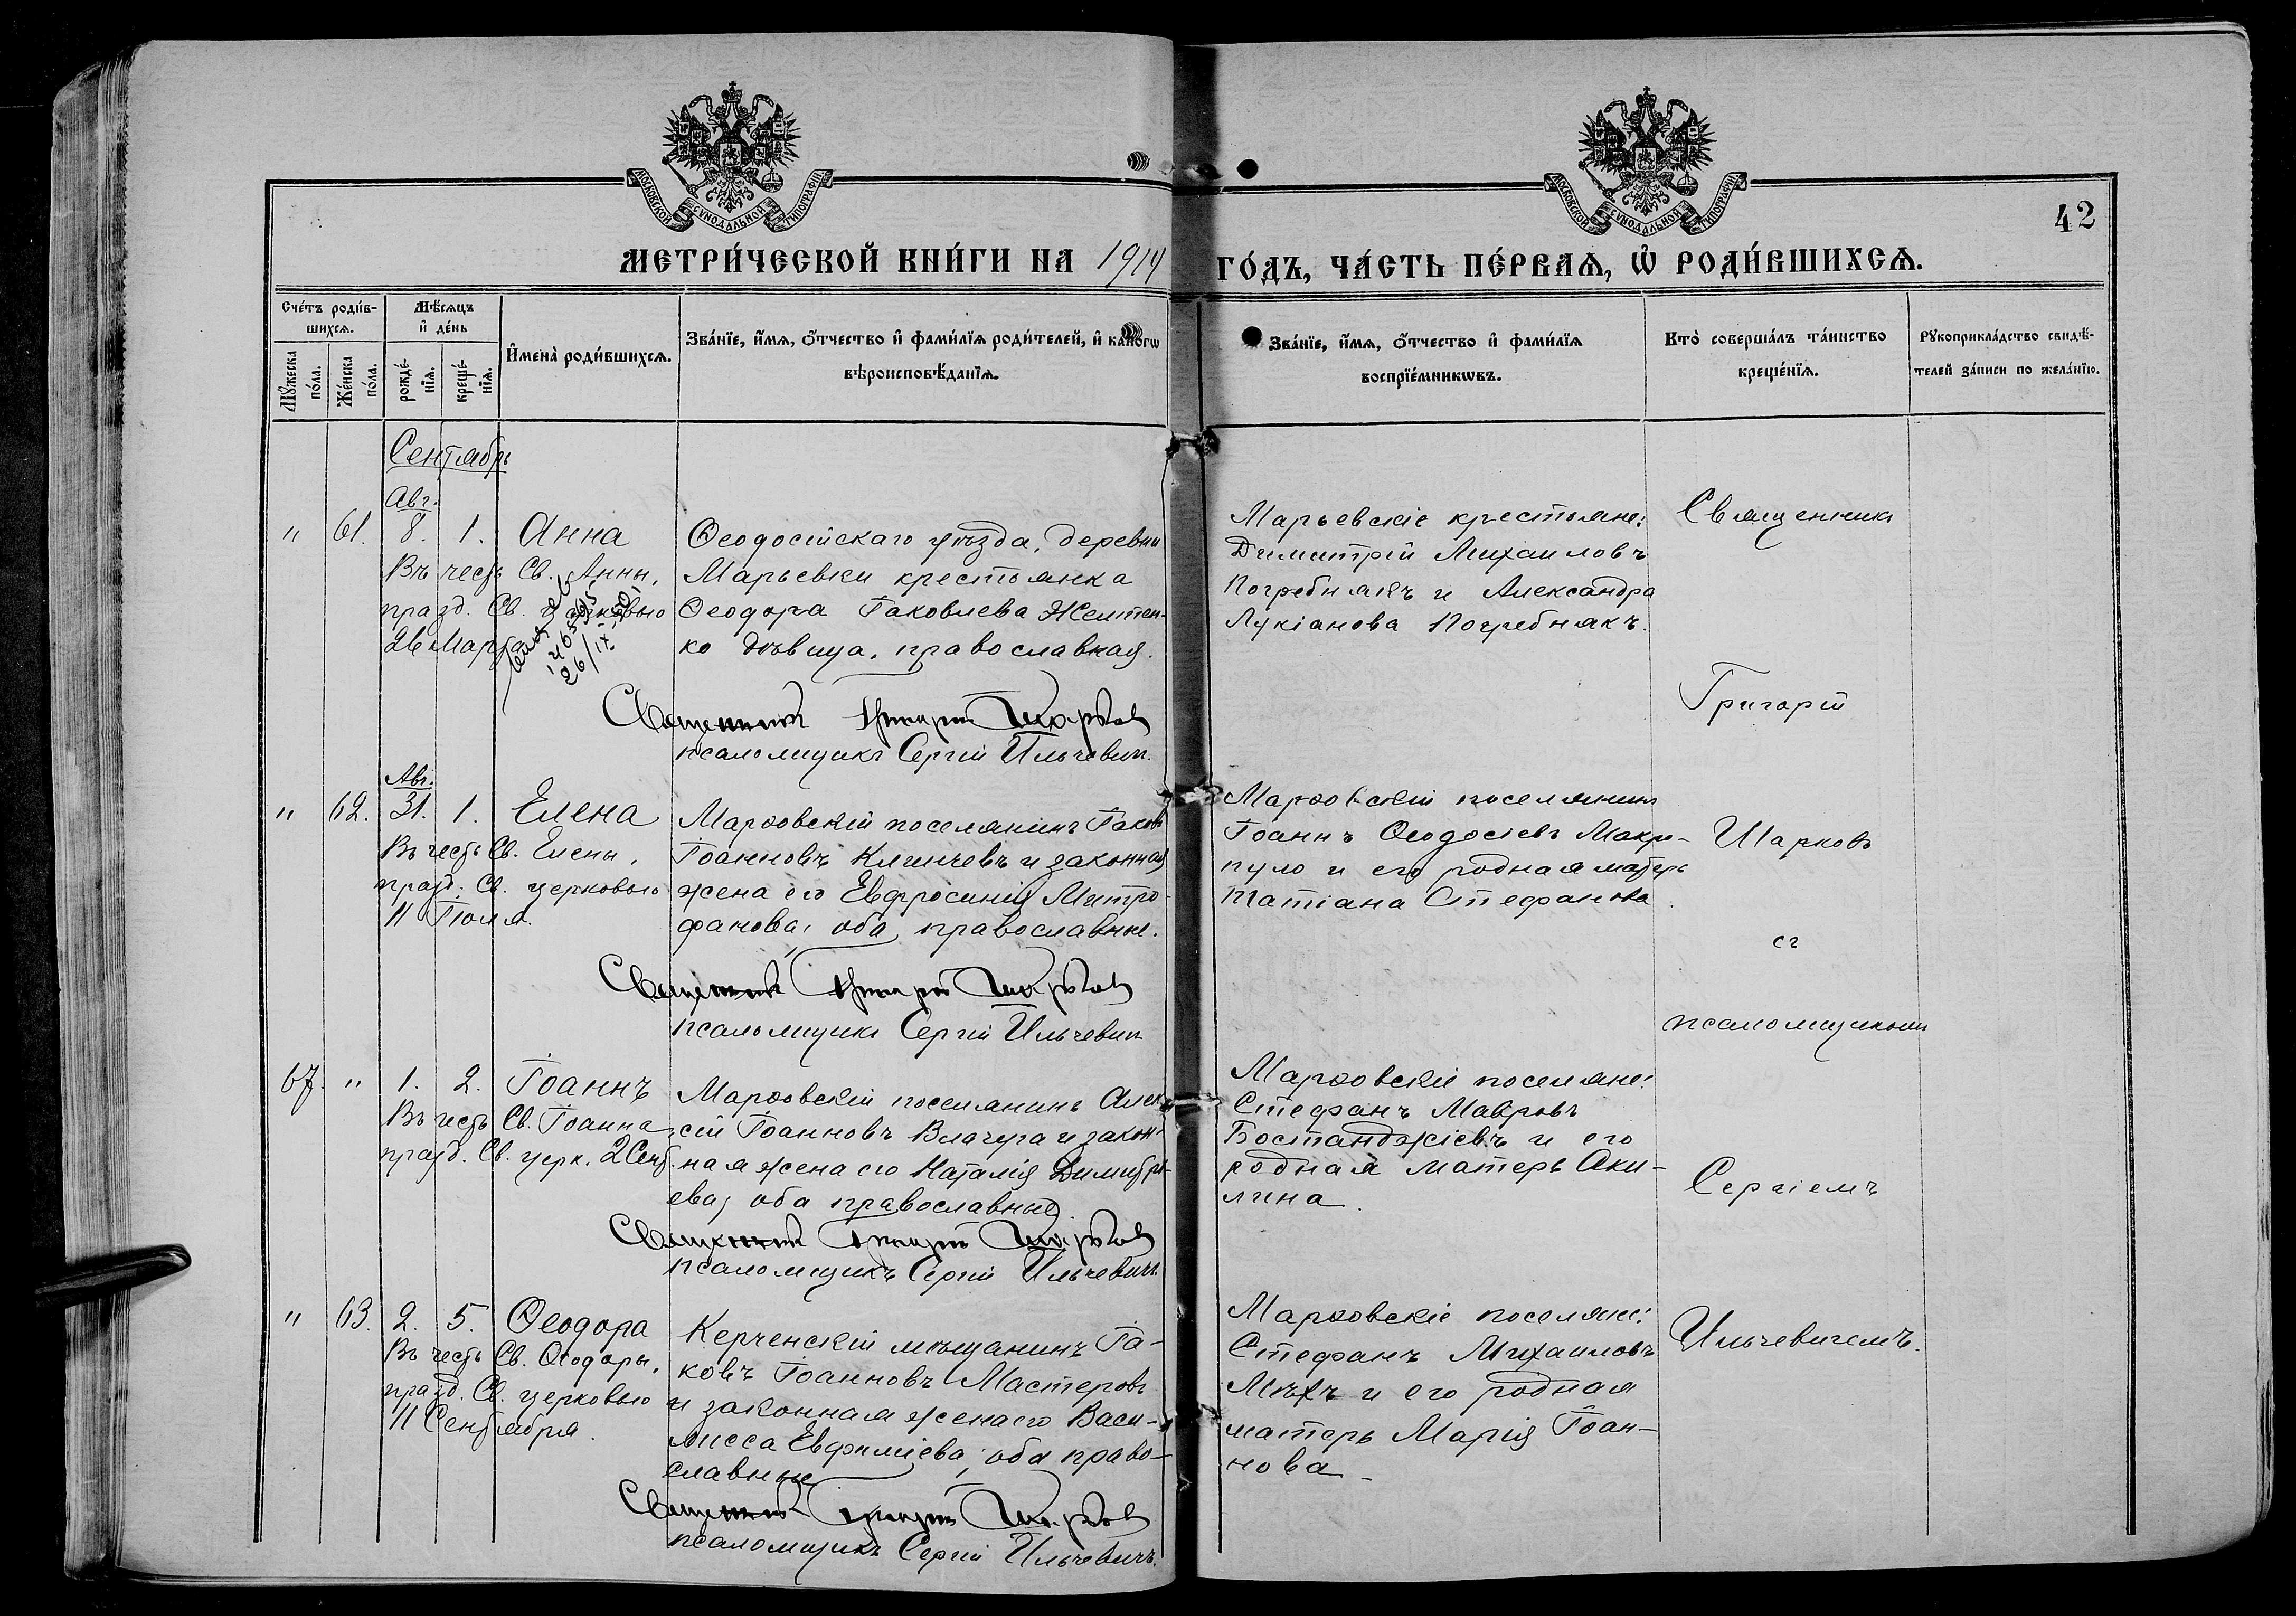 МОСКОВСКОЙ СѴНОДАЛЬНОЙ ТИПОГРАФІИ
МОСКОВСКОЙ СѴНОДАЛЬНОЙ ТИПОГРАФІИ
42
МЕТРИ́ЧЕСКОЙ КНИ́ГИ НА 1914 ГО́ДЪ, ЧА́СТЬ ПЕ́РВАѦ, Ѡ҆ РОДИ́ВШИХСѦ.
Сче́тъ роди́в-
шихсѧ.
Мꙋ́жеска по́ла.
Же́нска по́ла.
Мѣ́сѧцъ
и҆ де́нь
рожде́-нїѧ.
креще́-нїѧ.
И҆мена̀ роди́вшихсѧ.
Зва́нїе, и҆́мѧ, ѻ҆́тчество и҆ фами́лїѧ роди́телей, и҆ како́гѡ
вѣроисповѣ́данїѧ.
Зва́нїе, и҆́мѧ, ѻ҆́тчество и҆ фами́лїѧ
воспрїе́мникѡвъ.
Кто̀ соверша́лъ та́инство
креще́нїѧ.
Рꙋкоприкла́дство свидѣ́-
телей за́писи по жела́нїю.
Сентябрь
Авг.
" 61. 8. 1. Анна
Въ честь Св. Анны,
празд. Св. церковью
26 Марта
26/IX
Ѳеодосійскаго уѣзда, деревни
Марьевки крестьянка
Ѳеодора Іаковлева Желтен-
ко дѣвица, православная.
Священникъ Григорій Шарковъ
псаломщикъ Сергій Ильчевич.
Марьевскіе крестьяне:
Димитрій Михаиловъ
Погребнякъ и Александра
Лукіанова Погребнякъ.
Священникъ
Григорій
Шарковъ
съ
псаломщикомъ
Сергіемъ
Ильчевичемъ.
Авг.
" 62. 31. 1. Елена
Въ честь Св. Елены,
празд. Св. церковью
11 Іюля.
Марѳовскій поселянинъ Іаковъ
Іоанновъ Клинчевъ и законная
жена его Евфросинія Митро-
фанова, оба православные.
Священникъ Григорій Шарковъ
псаломщикъ Сергій Ильчевич
Марѳовскій поселянинъ
Іоаннъ Ѳеодосіевъ Макро-
пуло и его родная матерь
Татіана Стефанова.
67. " 1. 2. Іоаннъ
Въ честь Св. Іоанна,
празд. Св. церк. 2 Сент.
Марѳовскій поселянинъ Алек-
сій Іоанновъ Влачуга и закон-
ная жена его Наталія Димитрі-
ева, оба православные.
Священникъ Григорій Шарковъ
псаломщикъ Сергій Ильчевичъ
Марѳовскіе поселяне:
Стефанъ Мавровъ
Бостанджіевъ и его
родная матерь Аки-
лина.
" 63. 2. 5. Ѳеодора
Въ честь Св. Ѳеодоры,
празд. Св. церковью
11 Сентября.
Керченскій мѣщанинъ Іа-
ковъ Іоанновъ Мастеровъ
и законная жена его Васи-
лисса Евфиміева, оба право-
славные
Священникъ Григорій Шарковъ
псаломщикъ Сергій Ильчевичъ.
Марѳовскіе поселяне:
Стефанъ Михаиловъ
Мѣхъ и его родная
матерь Марія Іоан-
нова